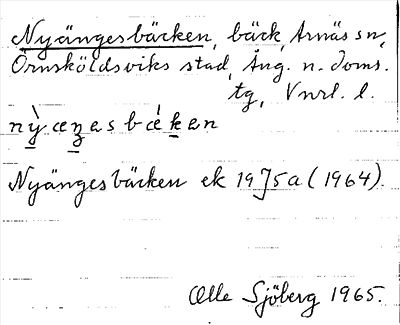 Nyängesbäcken, bäck, Arnäs sn,
Örnsköldsviks stad, Ång. n. doms.
tg, Vnrl. l.
Nyängesbäcken ek 19J5a (1964).
Olle Sjöberg 1965.